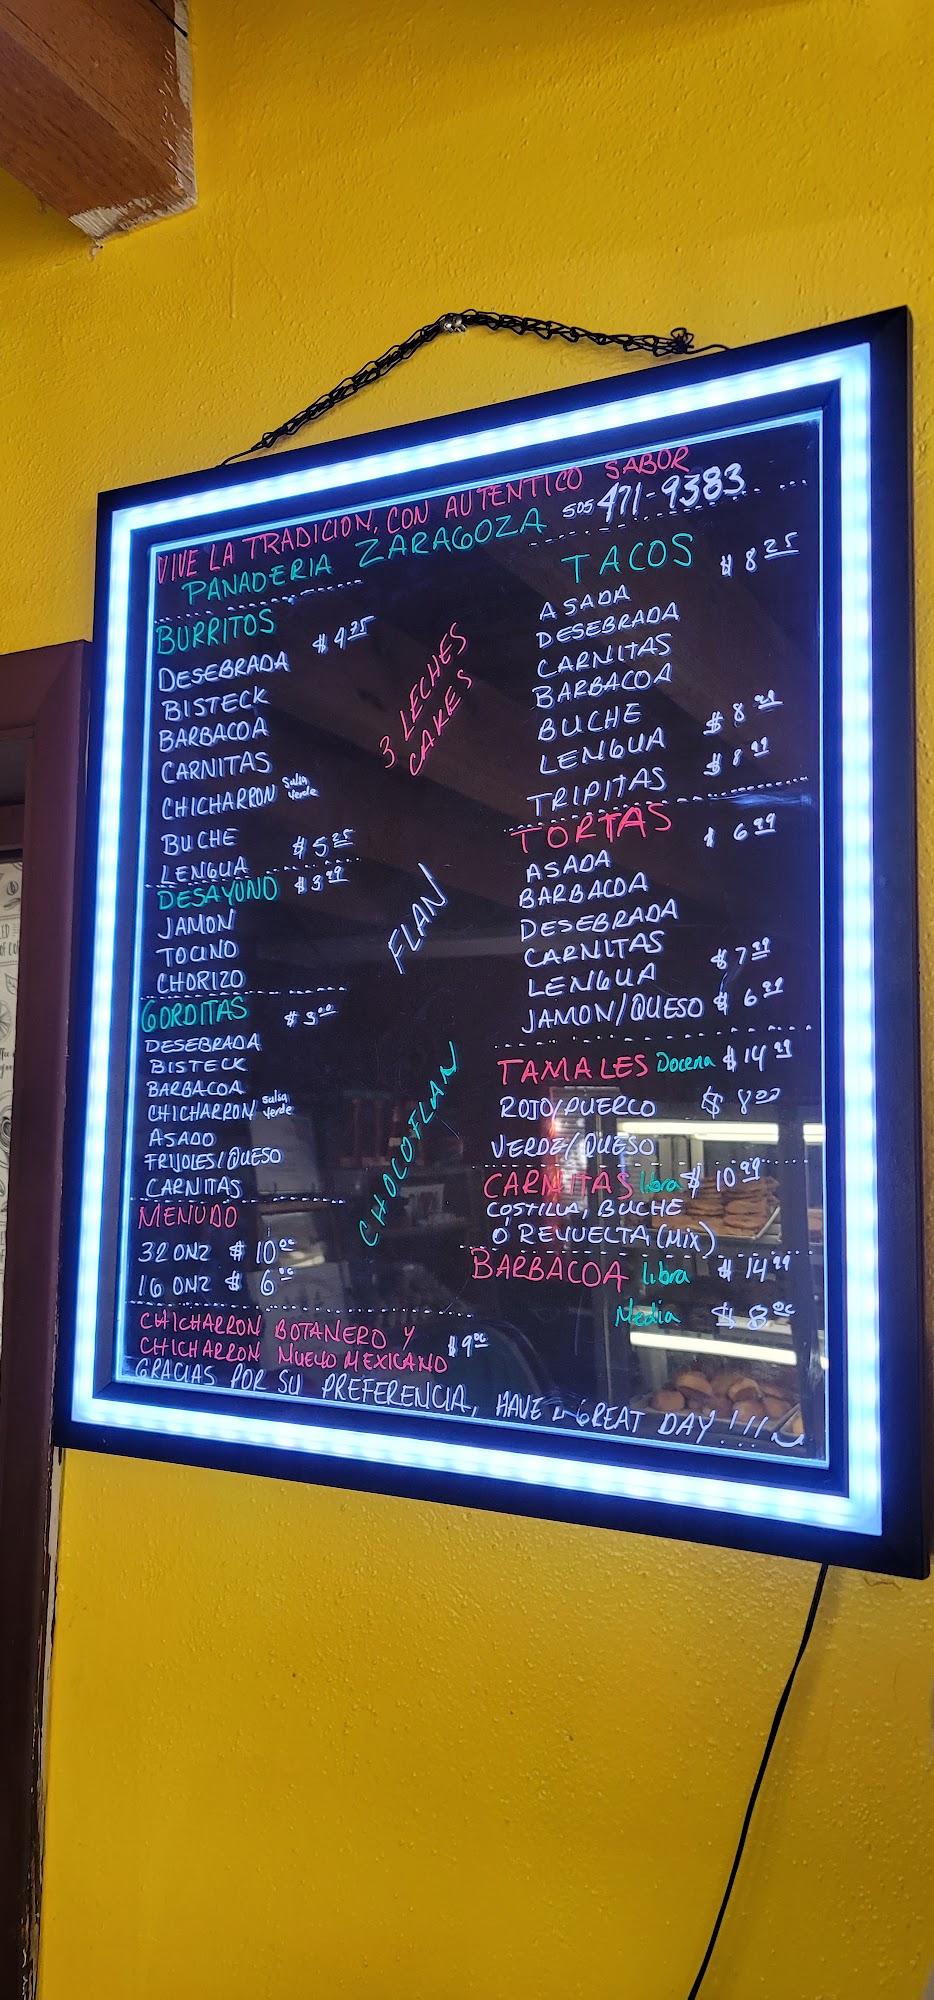 VIVE LA TRADICION, CON AUTENTICO SABOR
PANADERIA ZARAGOZA 505 471-9383
BURRITOS $4.75
DESEBRADA
BISTECK
BARBACOA
CARNITAS
CHICHARRON Salsa Verde
BUCHE
LENGUA $5.25
DESAYUNO $3.99
JAMON
TOCINO
CHORIZO
GORDITAS $3.00
DESEBRADA
BISTECK
BARBACOA
CHICHARRON Salsa Verde
ASADO
FRIJOLES/QUESO
CARNITAS
MENUDO
32 ONZ $10.00
16 ONZ $6.00
CHICHARRON BOTANERO Y
CHICHARRON NUEVO MEXICANO $9.00
3 LECHES
CAKES
FLAN
CHOCOFLAN
TACOS $8.25
ASADA
DESEBRADA
CARNITAS
BARBACOA
BUCHE
LENGUA $8.99
TRIPITAS $8.99
TORTAS $6.99
ASADA
BARBACOA
DESEBRADA
CARNITAS
LENGUA $7.99
JAMON/QUESO $6.99
TAMALES Docena $14.99
ROJO/PUERCO $8.00
VERDE/QUESO
CARNITAS libra $10.99
COSTILLA, BUCHE
O REVUELTA (MIX)
BARBACOA libra $14.99
Media $8.00
GRACIAS POR SU PREFERENCIA, HAVE A GREAT DAY!!!